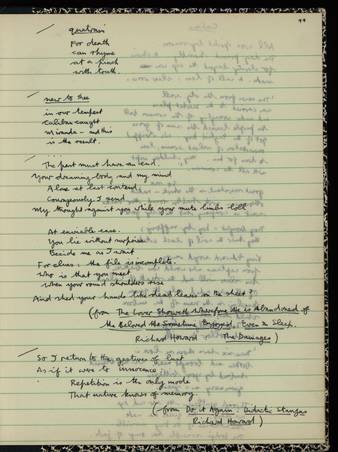 99
quatrain
For death
can rhyme
at a pinch
with truth.
new to thee
in our tempest
caliban caught
Miranda - and this
is the result.
The feast must have an end.
Your dreaming body and my mind
Alone at last contend
Courageously I send
My thought against you while your mute limbs loll
At enviable ease.
You lie without surprise
Beside me as I wait
For clues: the file is incomplete.
Who is that you meet
When your round shoulders rise
And shed your hands like dead leaves on the sheet?
(from The Lover Showeth Wherefore He is Abandoned of
the Beloved He Sometime Enjoyed, Even in Sleep.
Richard Howard The Damages)
So I return to the gestures of lust
As if it were to innocence
Repetition is the only mode
That nature knows of memory.
(from Do it Again: Didactic Stanzas
Richard Howard)